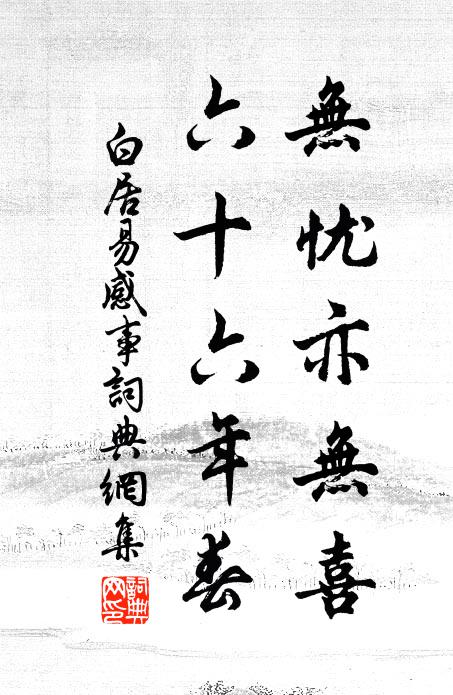 無忧亦無喜
六十六年春
白居易感事詞典網集
詞典网印